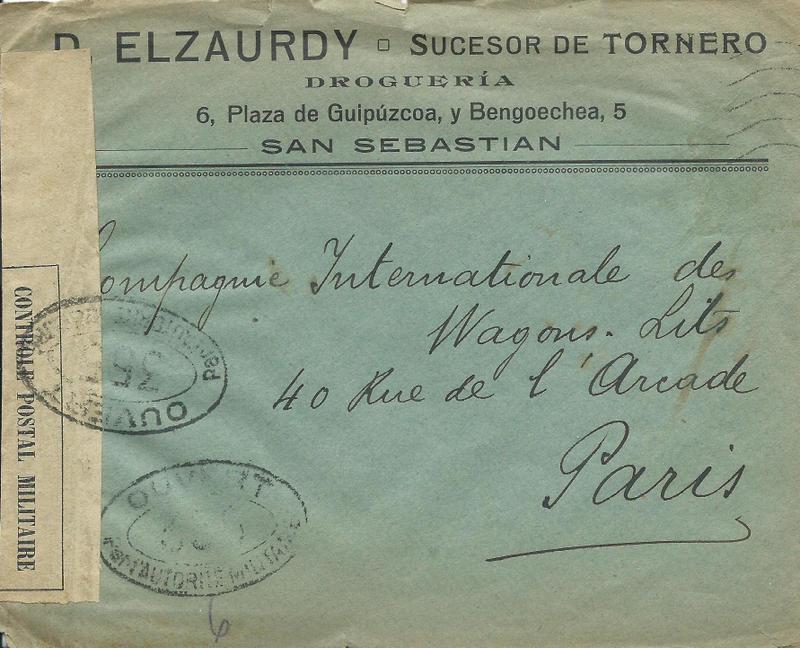 D. ELZAURDY ▫ SUCESOR DE TORNERO
DROGUERÍA
6, Plaza de Guipúzcoa, y Bengoechea, 5
SAN SEBASTIAN
Compagnie Internationale des
Wagons-Lits
40 Rue de l'Arcade
Paris
CONTROLE POSTAL MILITAIRE
OUVERT
OUVERT
PAR L'AUTORITÉ MILITAIRE
6